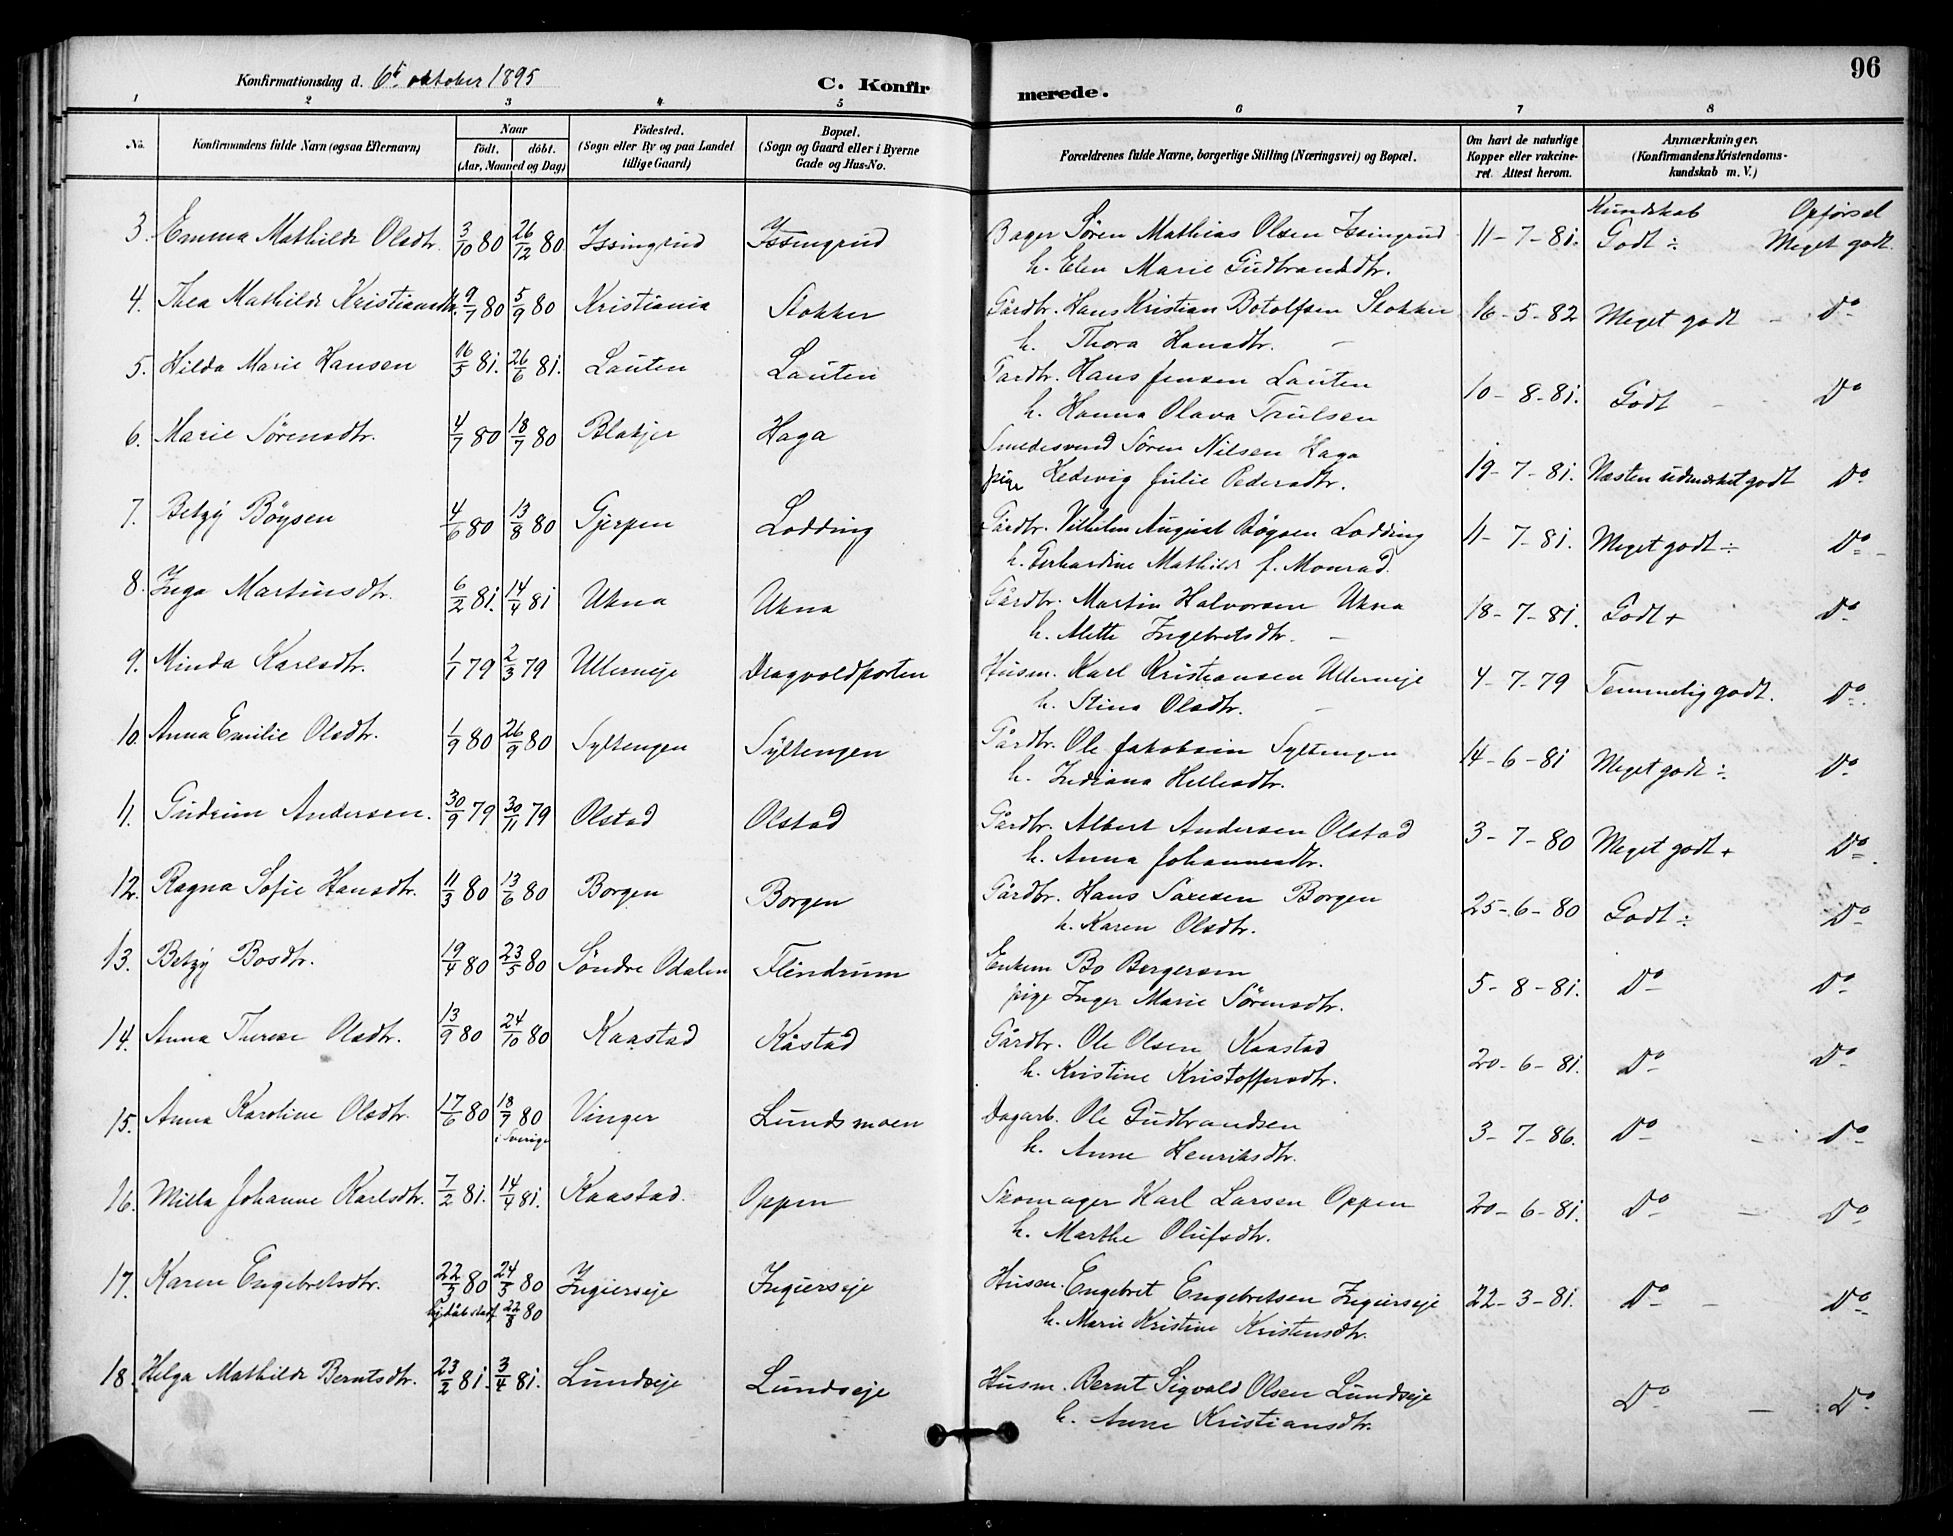 96
Konfirmationsdag d. 6te oktober 1895
C. Konfirmerede.
1 2 3 4 5 6 7 8
No. Konfirmandens fulde Navn (ogsaa Efternavn) Naar født. døbt. (Aar, Maaned og Dag) Fødested. (Sogn eller By og paa Landet tillige Gaard) Bopæl. (Sogn og Gaard eller i Byerne Gade og Hus-No. Forældrenes fulde Navne, borgerlige Stilling (Næringsvei) og Bopæl. Om havt de naturlige Kopper eller vakcineret. Attest herom. Anmærkninger. (Konfirmandens Kristendomskundskab m. V.)
Kundskab Opførsel
3. Emma Mathilde Olsdtr. 3/10 80 26/12 80 Issingrud Issingrud Bager Søren Mathias Olsen Issingrud 11-7-81. Godt ÷ Meget godt.
h. Elen Marie Gudbrandsdtr.
4. Thea Mathilde Kristiansdtr. 9/7 80 5/9 80 Kristiania Stokker Gårdbr. Hans Kristian Botolfsen Stokker 16-5-82 Meget godt - Do
h. Thora Hansdtr. -
5. Hilda Marie Hansen 16/5 81. 26/6 81. Lauten Lauten Gardbr. Hans Jensen Lauten 10-8-81. Godt - Do
h. Hanna Olava Trulsen
6. Marie Sørensdtr. 4/7 80 18/7 80 Blakjer Haga Smedesvend Søren Nilsen Haga 19-7-81. Næsten udmærket godt Do
pige Hedevig Julie Pedersdtr.
7. Betzy Bøysen 4/6 80 13/8 80 Gjerpen Lodding Gårdbr. Vilhelm August Bøysen Lodding 11-7-81. Meget godt ÷ Do
h. Gerhardine Mathilde f. Monrad.
8. Inga Martinsdtr. 6/2 81. 14/4 81 Ukna Ukna Gårdbr. Martin Halvorsen Ukna 18-7-81. Godt + Do
h. Mette Ingebretsdtr. -
9. Minda Karlsdtr. 1/1 79 2/3 79 Ullerneje Dragvoldporten Husm. Karl Kristiansen Ullerneje 4-7-79 Temmelig godt. Do
h. Stina Olsdtr. -
10. Anna Emilie Olsdtr. 1/9 80 26/9 80 Syltengen Syltengen Gårdbr. Ole Jakobsen Syltengen 14-6-81 Meget godt ÷ Do
h. Indiana Hellesdtr.
11. Gudrun Andersen. 30/9 79 30/11 79 Olstad Olstad Gårdbr. Albert Andersen Olstad 3-7-80 Meget godt + Do
h. Anna Johannesdtr.
12. Ragna Sofie Hansdtr. 11/3 80 13/6 80 Borgen Borgen Gårdbr. Hans Saxesen Borgen 25-6-80 Godt ÷ Do
h. Karen Olsdtr.
13. Betzy Bosdtr. 19/4 80 23/5 80 Søndre Odalen Flindrum Enkem Bo Bergersen 5-8-81. Do Do
pige Inger Marie Sørensdtr.
14. Anna Therese Olsdtr. 13/9 80 24/10 80 Kaastad Kåstad Gårdbr. Ole Olsen Kaastad 20-6-81. Do Do
h. Kristine Kristoffersdtr.
15. Anna Karoline Olsdtr. 17/6 80 18/7 80 Vinger Lundsmoen Dagarb. Ole Gudbrandsen 3-7-86. Do - Do
i Sverige h. Anne Henriksdtr.
16. Milla Johanne Karlsdtr. 7/2 81. 14/4 81. Kaastad. Oppen Skomager Karl Larsen Oppen 20-6-81. Do - Do
h. Marthe Olufsdtr.
17. Karen Engebretsdtr. 22/3 80 24/3 80 Ingierseje Ingierseje Husm. Engebret Engebretsen Ingierseje 22-3-81. Do - Do
22/8 80 h. Marie Kristine Kristensdtr.
18. Helga Mathilde Berntsdtr. 23/2 81. 3/4 81. Lundseje Lundseje Husm. Bernt Sigvald Olsen Lundseje Do - Do
h. Anne Kristiansdtr.